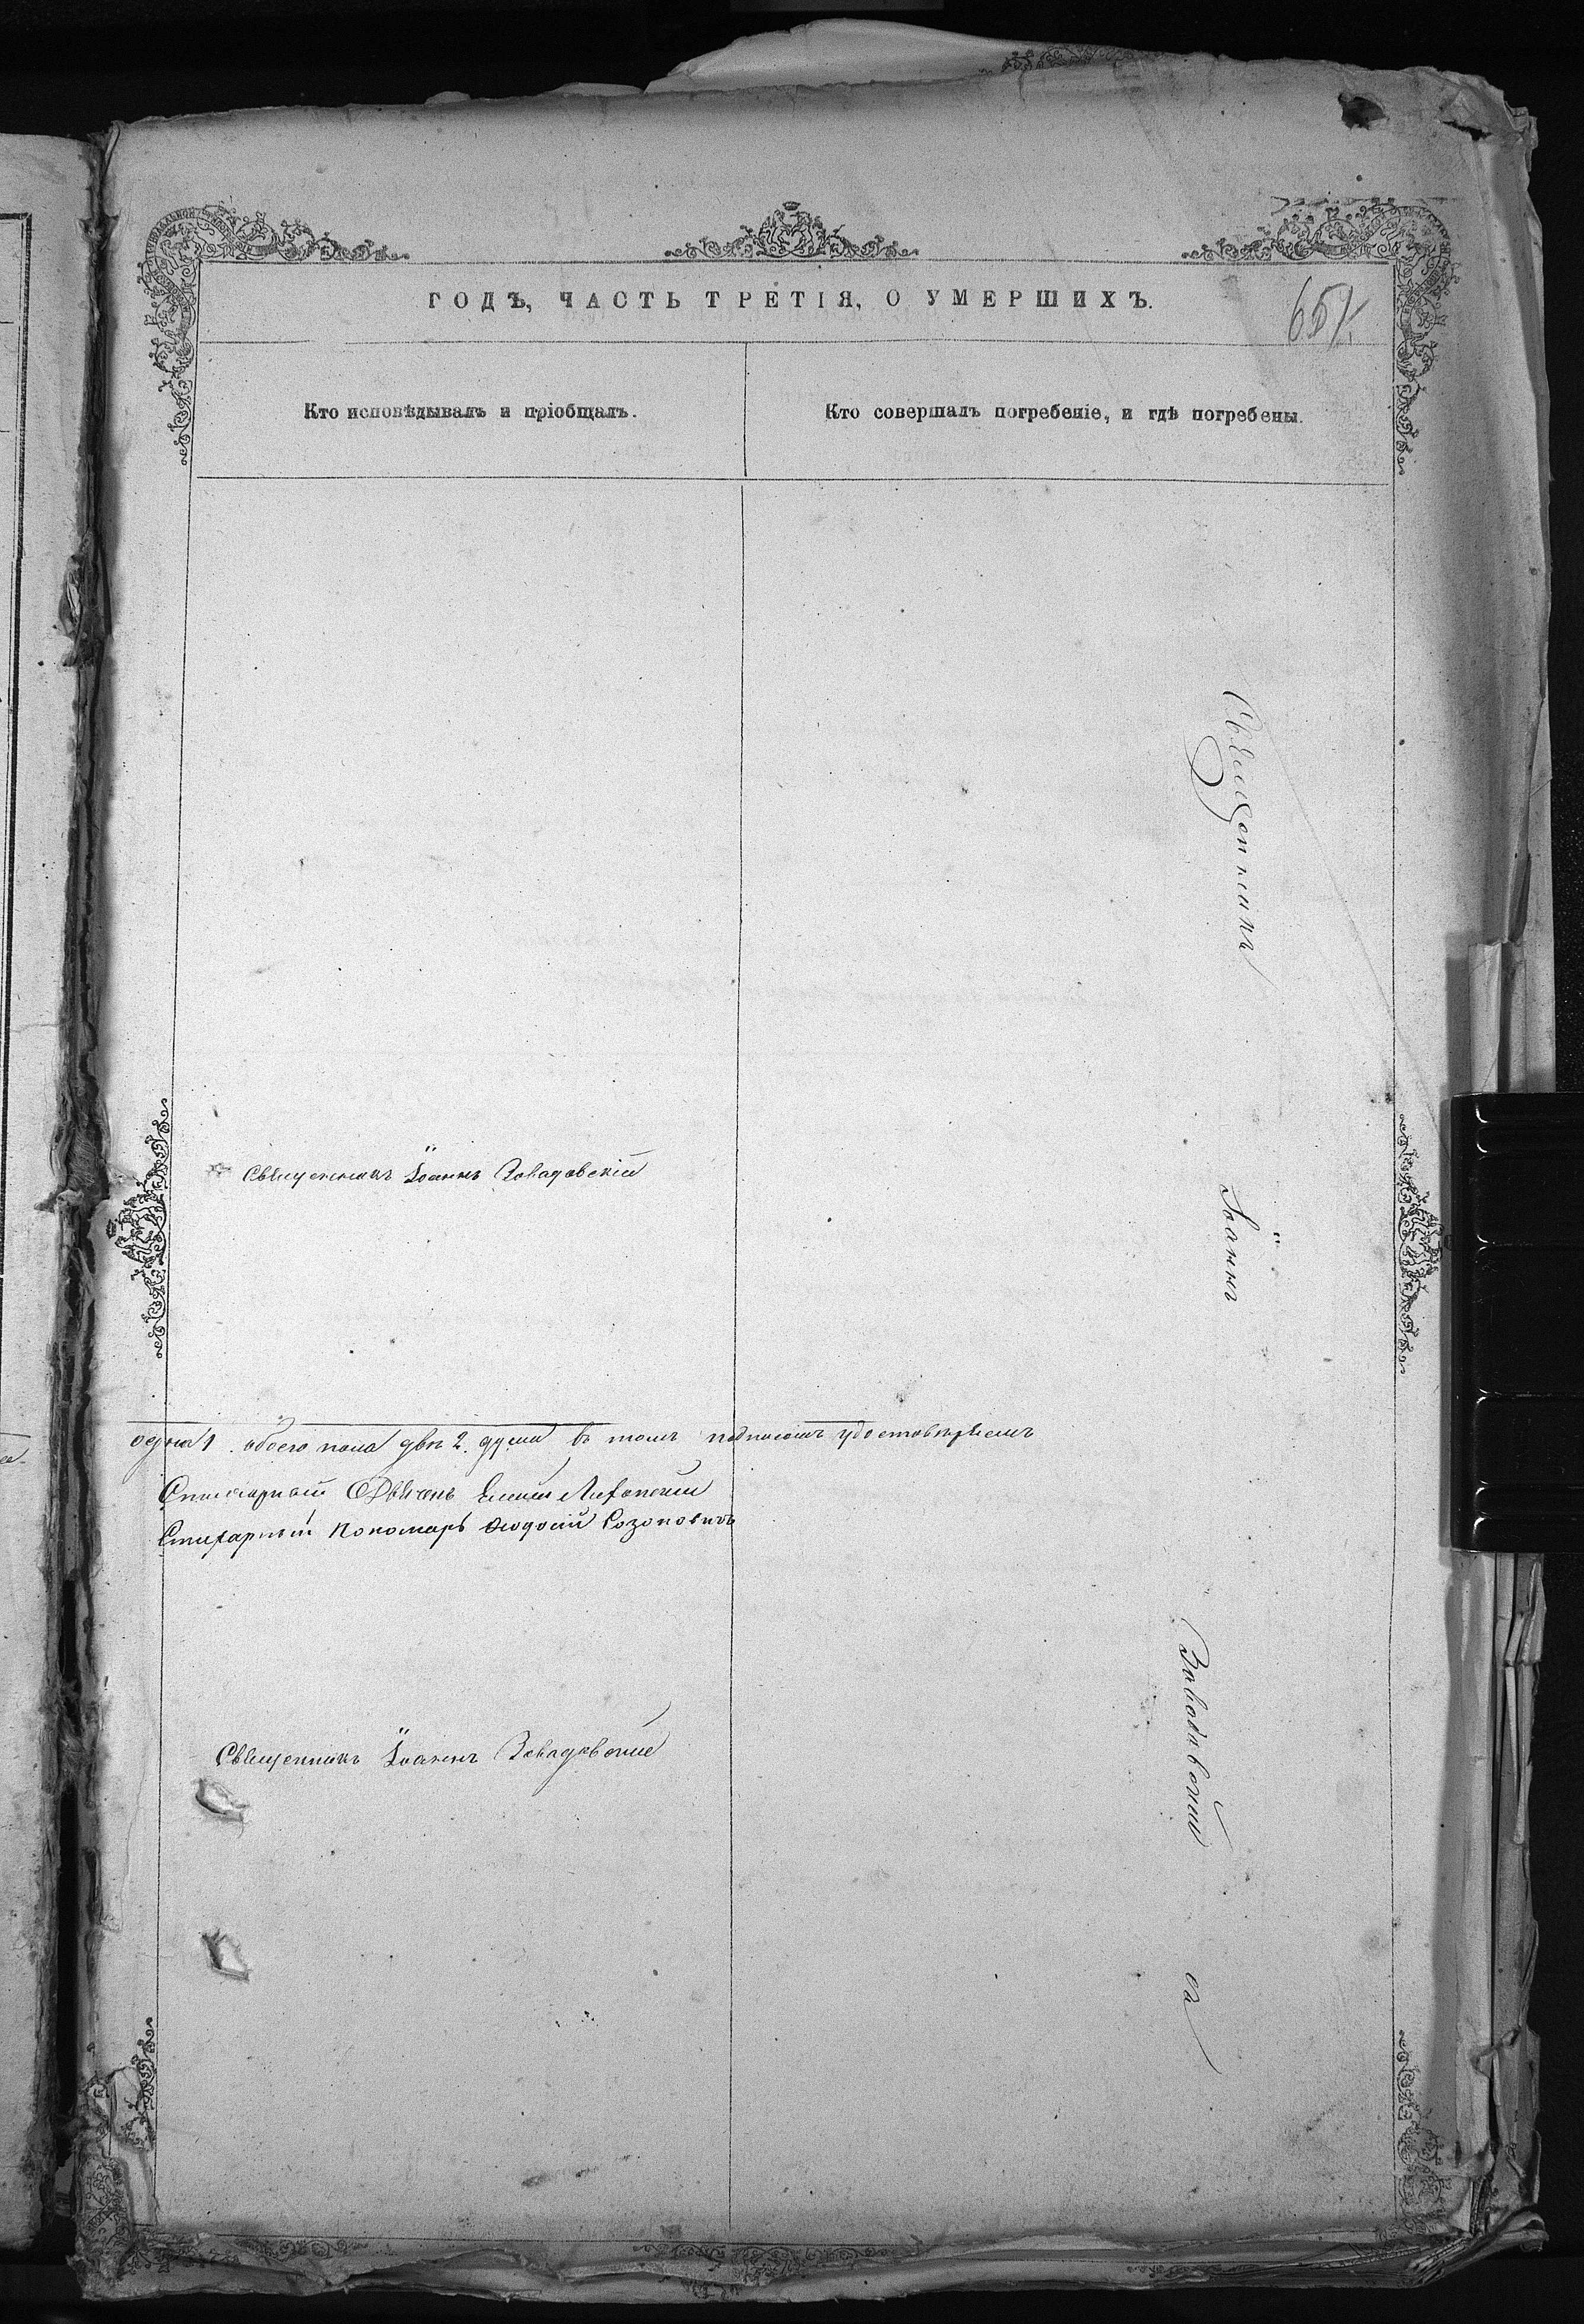 ГОДЪ, ЧАСТЬ ТРЕТІЯ, О УМЕРШИХЪ.
651.
Кто исповѣдывалъ и пріобщалъ.
Кто совершалъ погребеніе, и гдѣ погребены.
Священникъ Іоаннъ Завадовскій
одна 1. обоего пола двѣ 2. души въ томъ подписомъ удостовѣряемъ
Стихарный
Стихарный Пономарь Ѳеодосій Созоновичъ
Священникъ Іоаннъ Завадовскій
Священникъ
Іоаннъ
Завадовскій